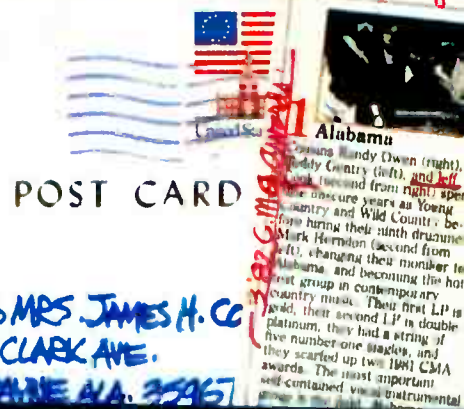 POST CARD
MRS. JAMES H. CO
CLARK AVE.
AYNE, ALA. 35967
3 '82 C.M.A. awards
1
Alabama
Cousins Randy Owen (right),
Teddy Gentry (left), and Jeff
Cook (second from right) spent
nine obscure years as Young
Country and Wild Country be-
fore hiring their ninth drummer
Mark Herndon (second from
left), changing their moniker to
Alabama, and becoming the hot-
test group in contemporary
country music. Their first LP is
gold, their second LP is double
platinum, they had a string of
five number one singles, and
they scarfed up two 1981 CMA
awards. The most important
self-contained vocal-instrumental